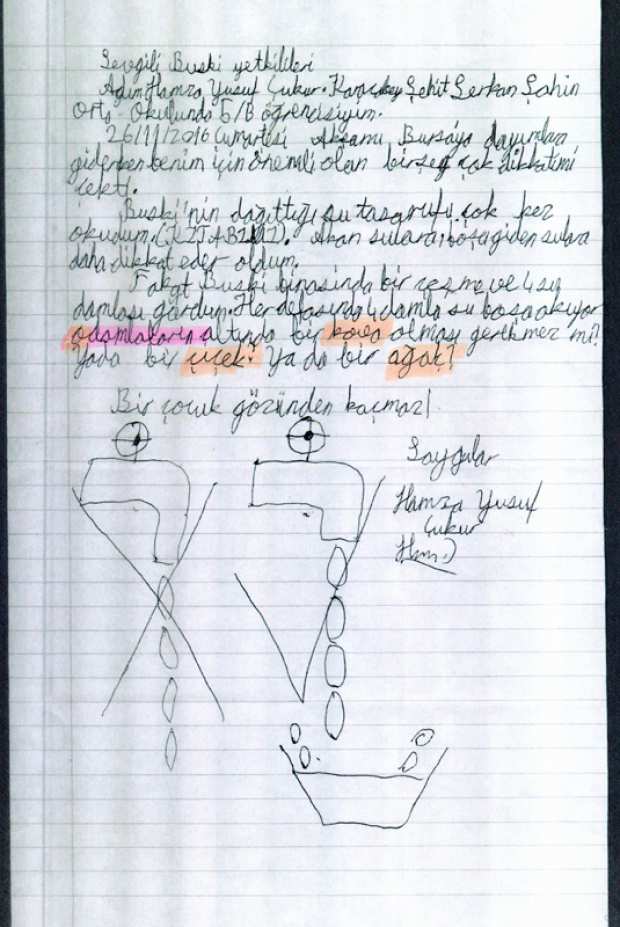 Sevgili Buski yetkilileri
Adım Hamza Yusuf Çukur. Karacabey Şehit Serkan Şahin
Orta Okulunda 5/B öğrencisiyim.
26/11/2016 Cumartesi Akşamı Bursaya dayımlara
giderken benim için önemli olan birşey çok dikkatimi
çekti.
Buski'nin dağıttığı su tasarufu çok kez
okudum. Akan sulara, boşa giden sulara
daha dikkat eder oldum.
Fakat Buski binasında bir çeşme ve 4 su
damlası gördüm. Her defasında 4 damla su boşa akıyor
o damlaların altında bir kova olması gerekmez mi?
Yada bir çiçek? Ya da bir ağaç?
Bir çocuk gözünden kaçmaz!
Saygılar
Hamza Yusuf
Çukur